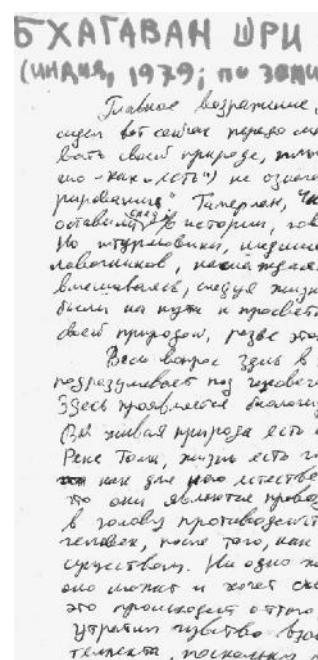 БХАГАВАН ШРИ
(ИНДИЯ, 1979; по запи
Главное возражение,
сидел вот сейчас передо мн
вать своей природе, жить
это-как-есть") не означа
Тамерлан, Чи
оставили след в истории, гов
Но штурмовики,
лавочников, наслаждали
вмешиваясь, следуя жизни
были на пути к просветл
своей природой, разве это
Весь вопрос здесь в
подразумевает под человеч
Здесь проявляется биологич
Вся живая природа есть
Рене Тома, жизнь есть
как для него естестве
что они являются провод
в голову противодейств
человек, после того, как
существом. Ни одно жи
оно может и хочет
это происходит оттого,
утратил чувство вза
теллекта, поскольку